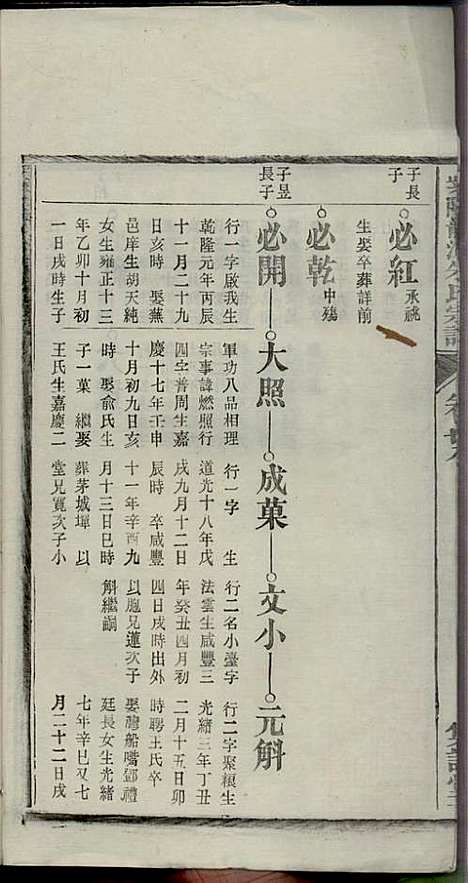 子長子
必紅 承祧
生娶卒葬詳前
必乾 中殤
子昱長子
必開
行一字啟我生
乾隆元年丙辰
十一月二十九
日亥時 娶蕪
邑庠生胡天純
女生雍正十三
年乙卯十月初
一日戌時生子
大照
軍功八品相理
宗事諱燃照行
四字普周生嘉
慶十七年壬申
十月初九日亥
時 娶俞氏生
子一菓 繼娶
王氏生嘉慶二
成菓
行一字 生
道光十八年戊
戌九月十二日
辰時 卒咸豐
十一年辛酉九
月十三日巳時
葬茅城墠 以
堂兄寬次子小
文小
行二名小臺字
法雲生咸豐三
年癸丑四月初
四日戌時出外
以胞兄蓮次子
斛繼嗣
元斛
行二字聚根生
光緒三年丁丑
二月十五日卯
時聘王氏卒
娶灣船嘴鄧禮
廷長女生光緒
七年辛巳又七
月二十二日戌